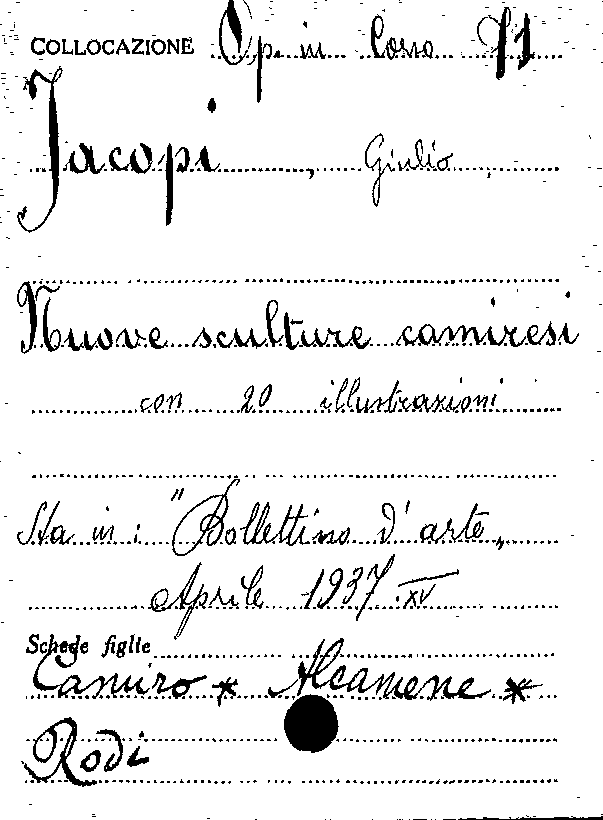 COLLOCAZIONE Op. in Corso 71
Jacopi, Giulio
Nuove sculture camiresi
con 20 illustrazioni
Sta in: "Bollettino d'arte„
Aprile 1937.XV
Schede figlie
Camiro * Alcamene *
Rodi